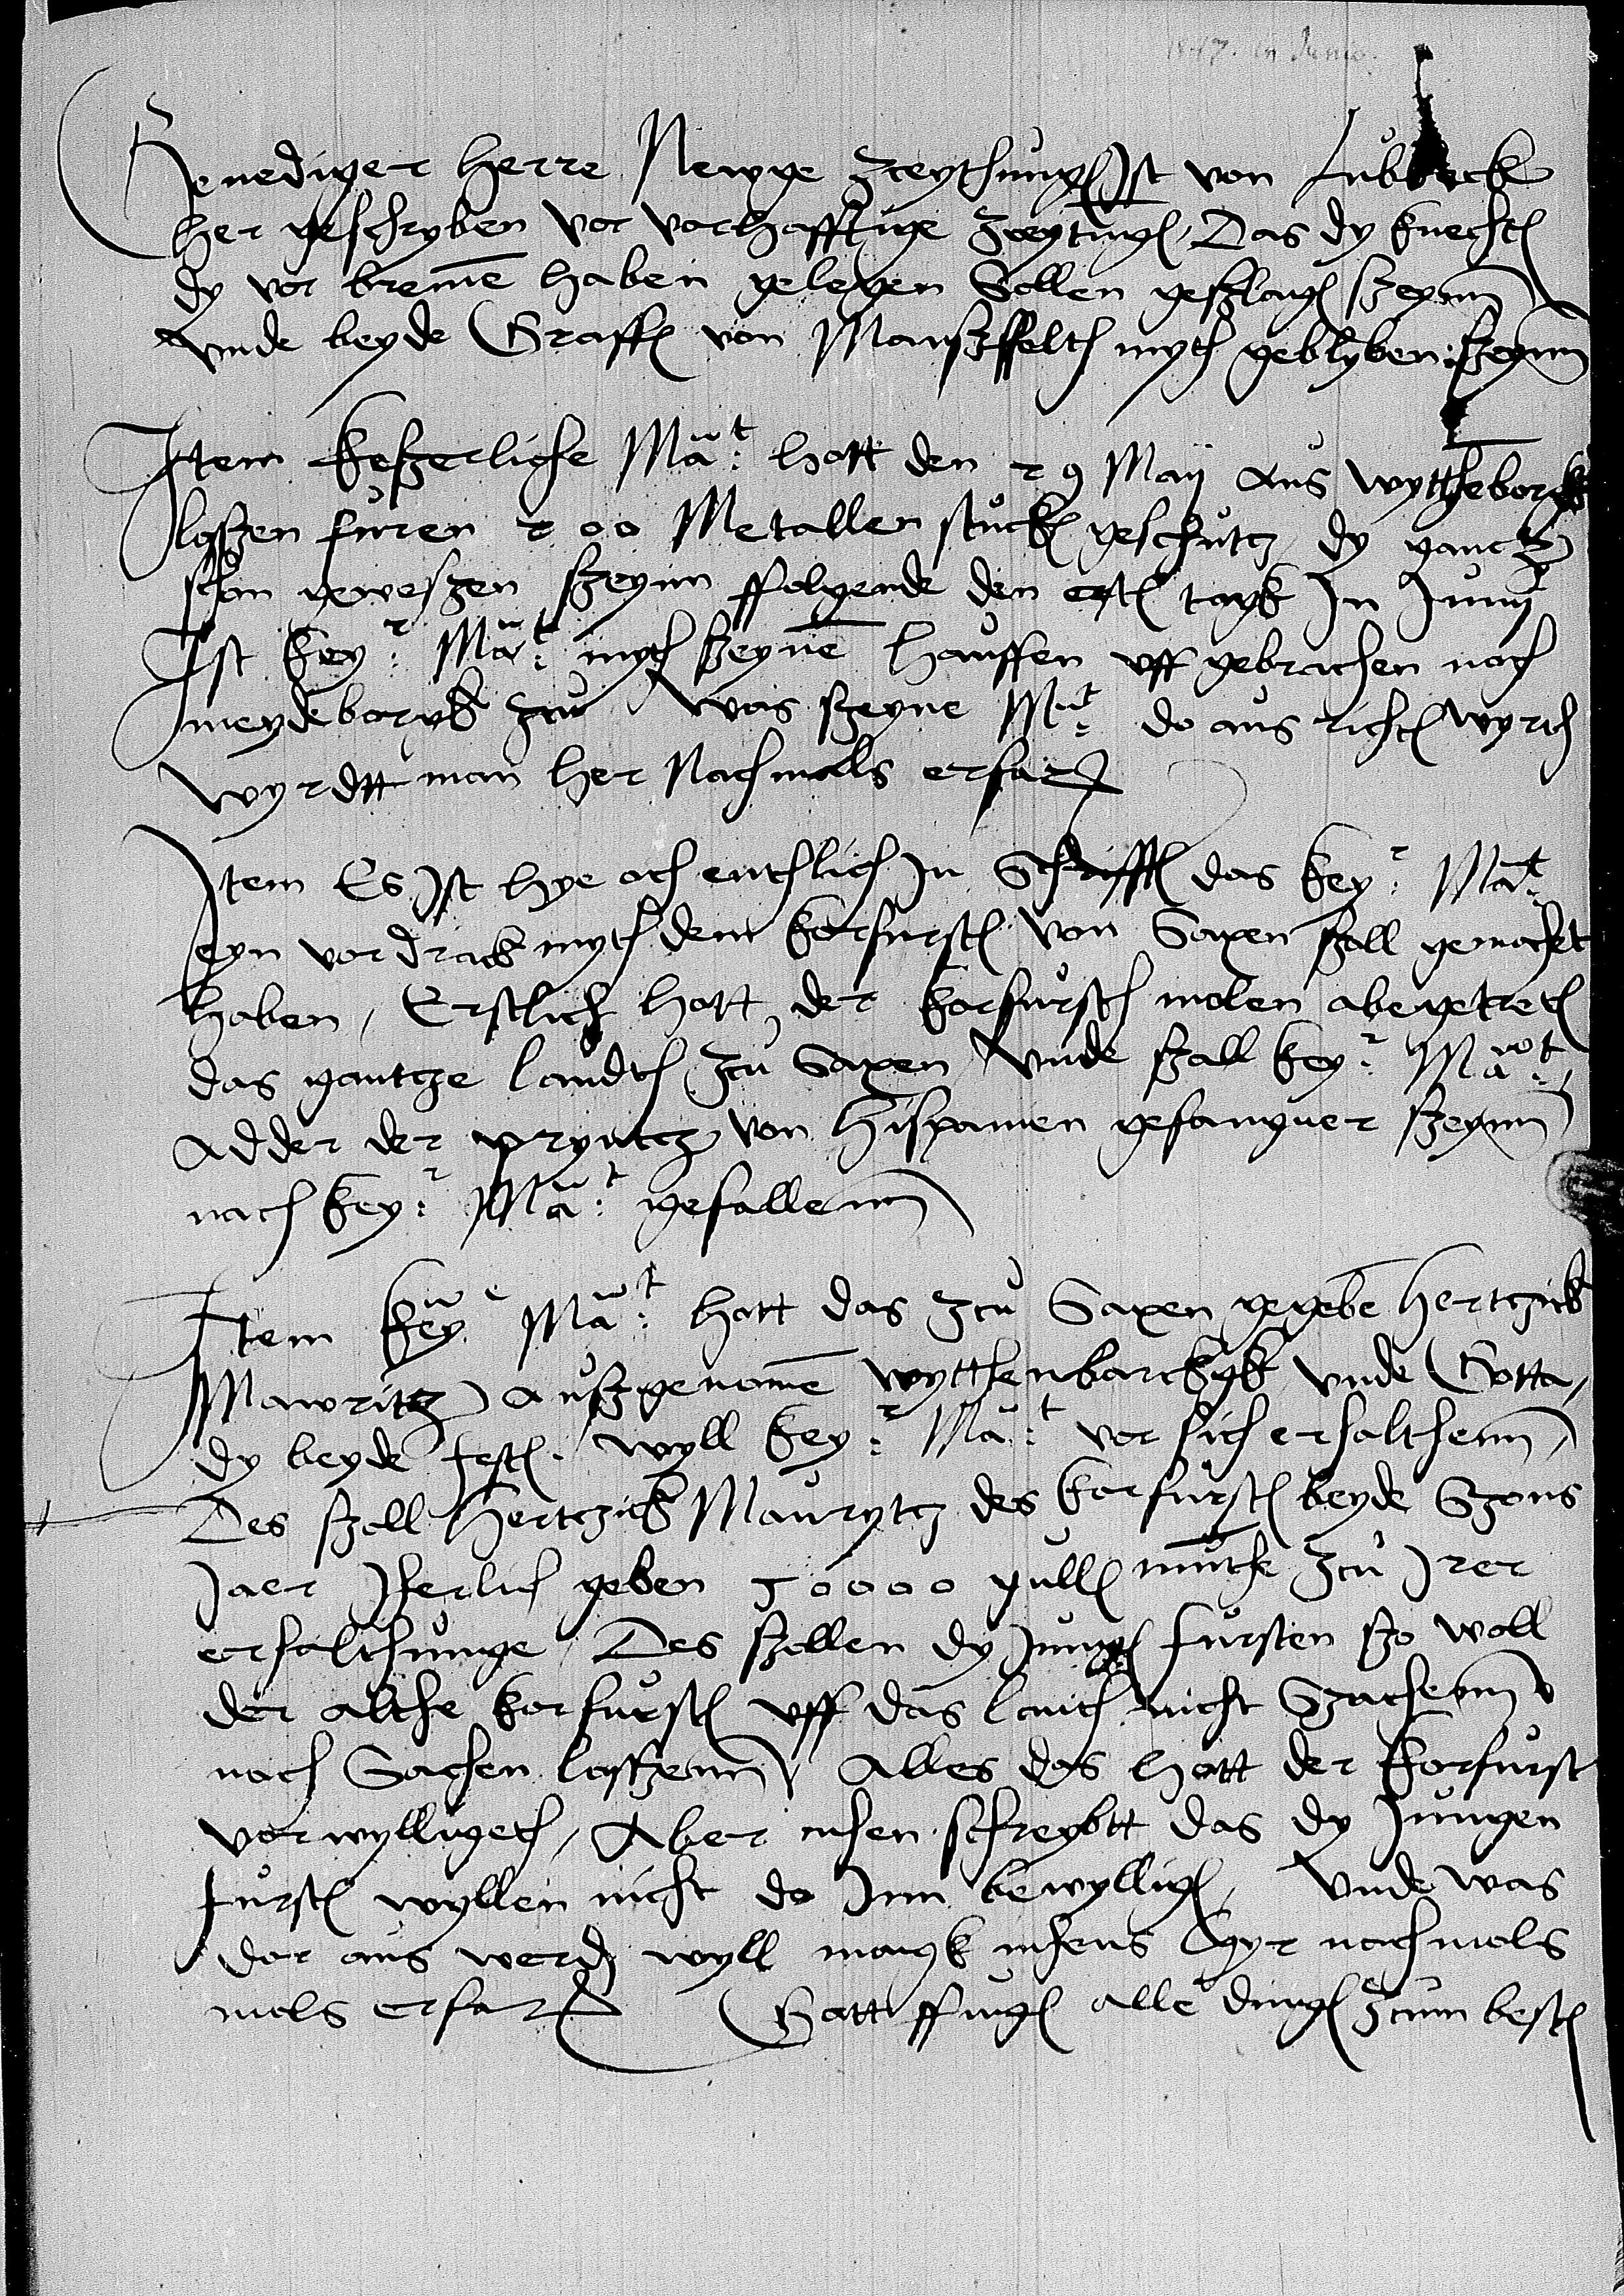 1547. in Junio.
Genediger herre Newge zceythung Ist von Lubeck
her geschryben vor vorhafftige zceytung, Das dy knecht
dy vor breme haben gelegen Sollen geszlag szeynn
vnde beyde Graff von Manszffelth myth geblyben szeynn
Item keszerliche Mat: hatt den 29 Maij aus wyttheborgk
loszen furen 200 Metallen stuck geschutz dy gantz
schon geweszen szeynn ffolgende den erst tagk In Junij
Ist Keyr: Mat: myth szeyne hauffen vff gebrachen noch
meydeborgk zcu was szeyne Mat: do aus richt wyrth
wyrdtt man her Nachmalls erfar
Item Es Ist hye och enthlich In Schrifft das keyr: Mat:
eyn vordrack myth dem korfurst von Saxen szall gemachet
haben, Erstlich hatt der korfurst molen abegetret
das gantze landth zcu Saxen Vnde szall keyr: Mat:
Adder der pryntz von Hispanien gefangner szeynn
nach keyr: Mat: gefallenn
Item key: Mat: hatt das zcu Saxen gegebe hertzick
Mawritz auszgenome wytthenbarckgk vnde Gotta,
dy beyde fest. wyll keyr: Mat: vor sich erhalthenn,
Des szoll hertzick Maurytz des korfurst beyde Szons
Jaer Jherlich geben 50000 gull muthe zcu Irer
erhalthunge, Des szollen dy Jung fursten szo woll
der althe korfurst vff das lanth nicht Szachenn
noch Sachen loszenn, Alles das hatt der korfurst
vorwylligeth, Aber schreybtt das dy Jungen
furst wyllen nicht do Inn bewyllig, Vnde was
dar aus werd wyll nachmols
mols erfar Gatt ffug alle ding zcum best